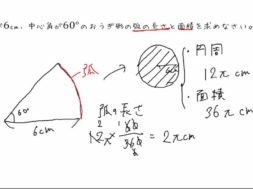 6cm, 中心角が60°のおうぎ形の弧の長さと面積を求めなさい。
弧
60°
6cm
6cm
・円周
12πcm
・面積
36πcm
弧の長さ
12π × 60/360 = 2πcm